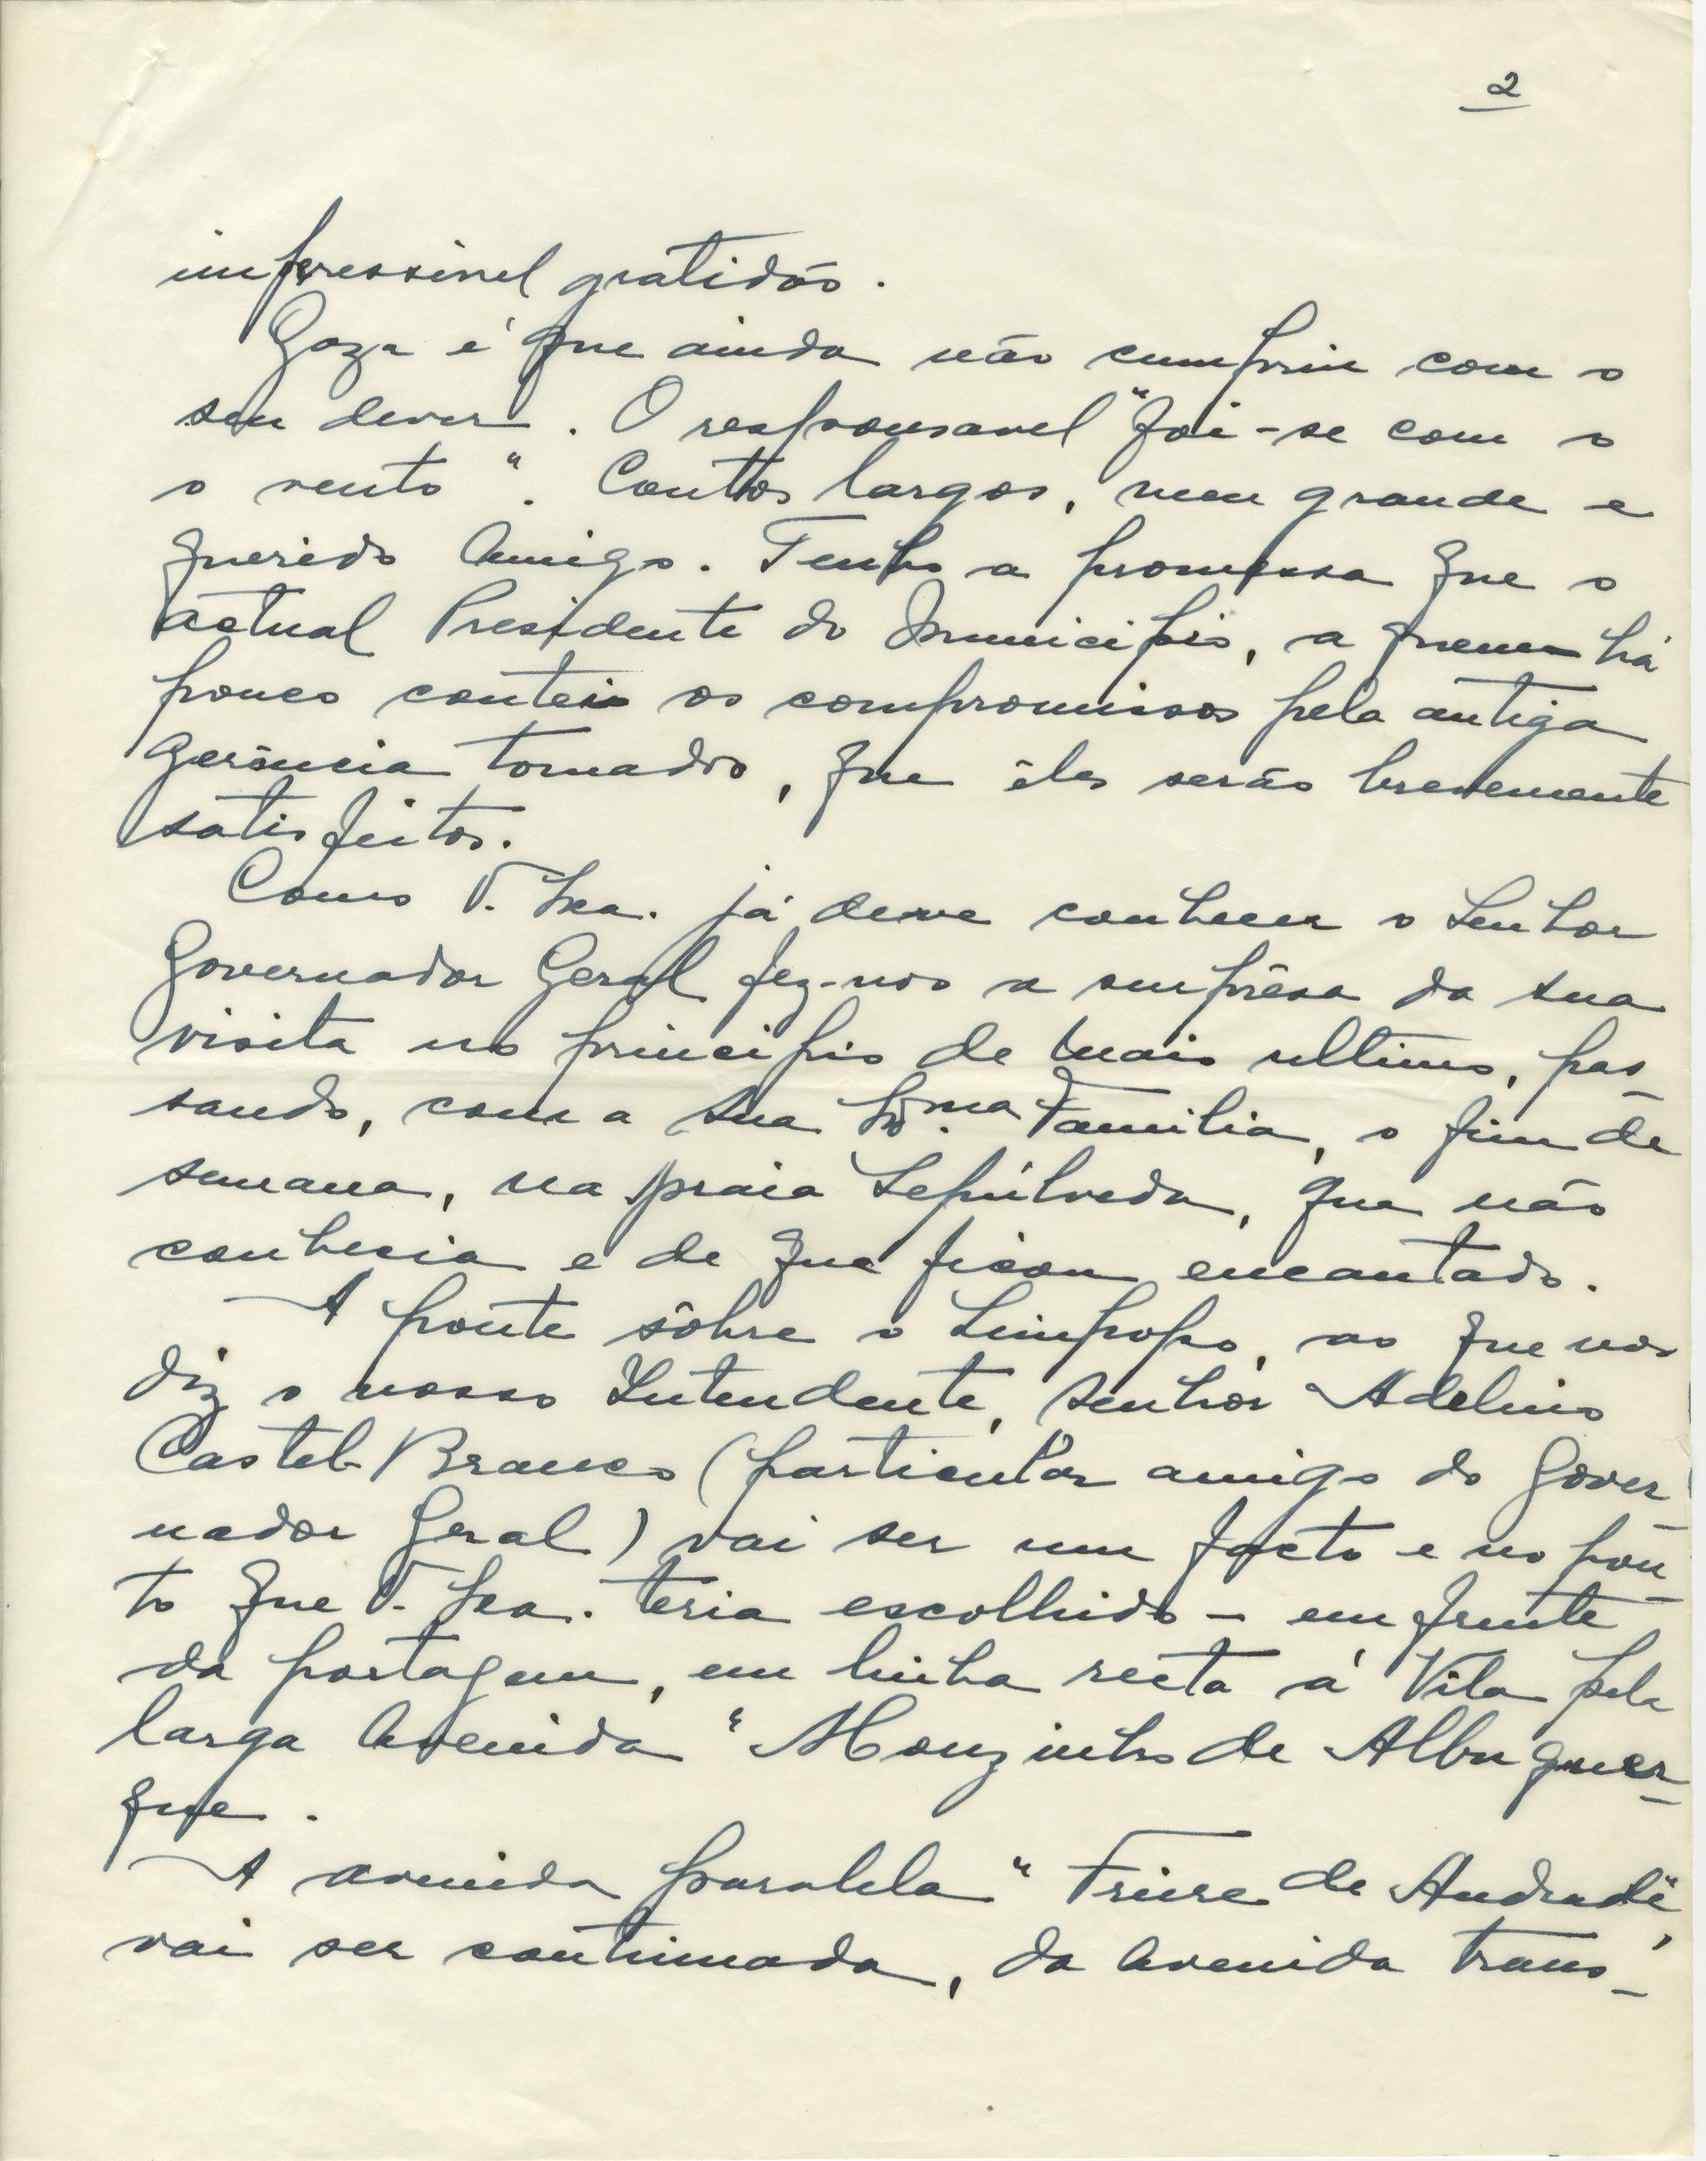 2
impressivel gratidão.
Gaza é que ainda não cumpriu com o
seu dever. O responsavel "foi-se com o
o vento". Contos largos, meu grande e
querido Amigo. Tenho a promessa que o
actual Presidente do Município, a quem há
pouco contei os compromissos pela antiga
gerência tomados, que êles serão brevemente
satisfeitos.
Como V. Exa. já deve conhecer o Senhor
Governador Geral fez-nos a surprêsa da sua
visita no principio de Maio ultimo, pas-
sando, com a sua Exma. Familia, o fim de
semana, na praia Sepúlveda, que não
conhecia e de que ficou encantado.
A ponte sôbre o Limpopo, ao que nos
diz o nosso Intendente, Senhor Adelino
Castelo Branco (particular amigo do Gover-
nador Geral) vai ser um facto e no pon-
to que V. Exa. teria escolhido - em frente
da portagem, em linha recta á Vila pela
larga Avenida "Mouzinho de Albuquer-
que.
A avenida paralela "Freire de Andrade",
vai ser continuada, da Avenida trans-